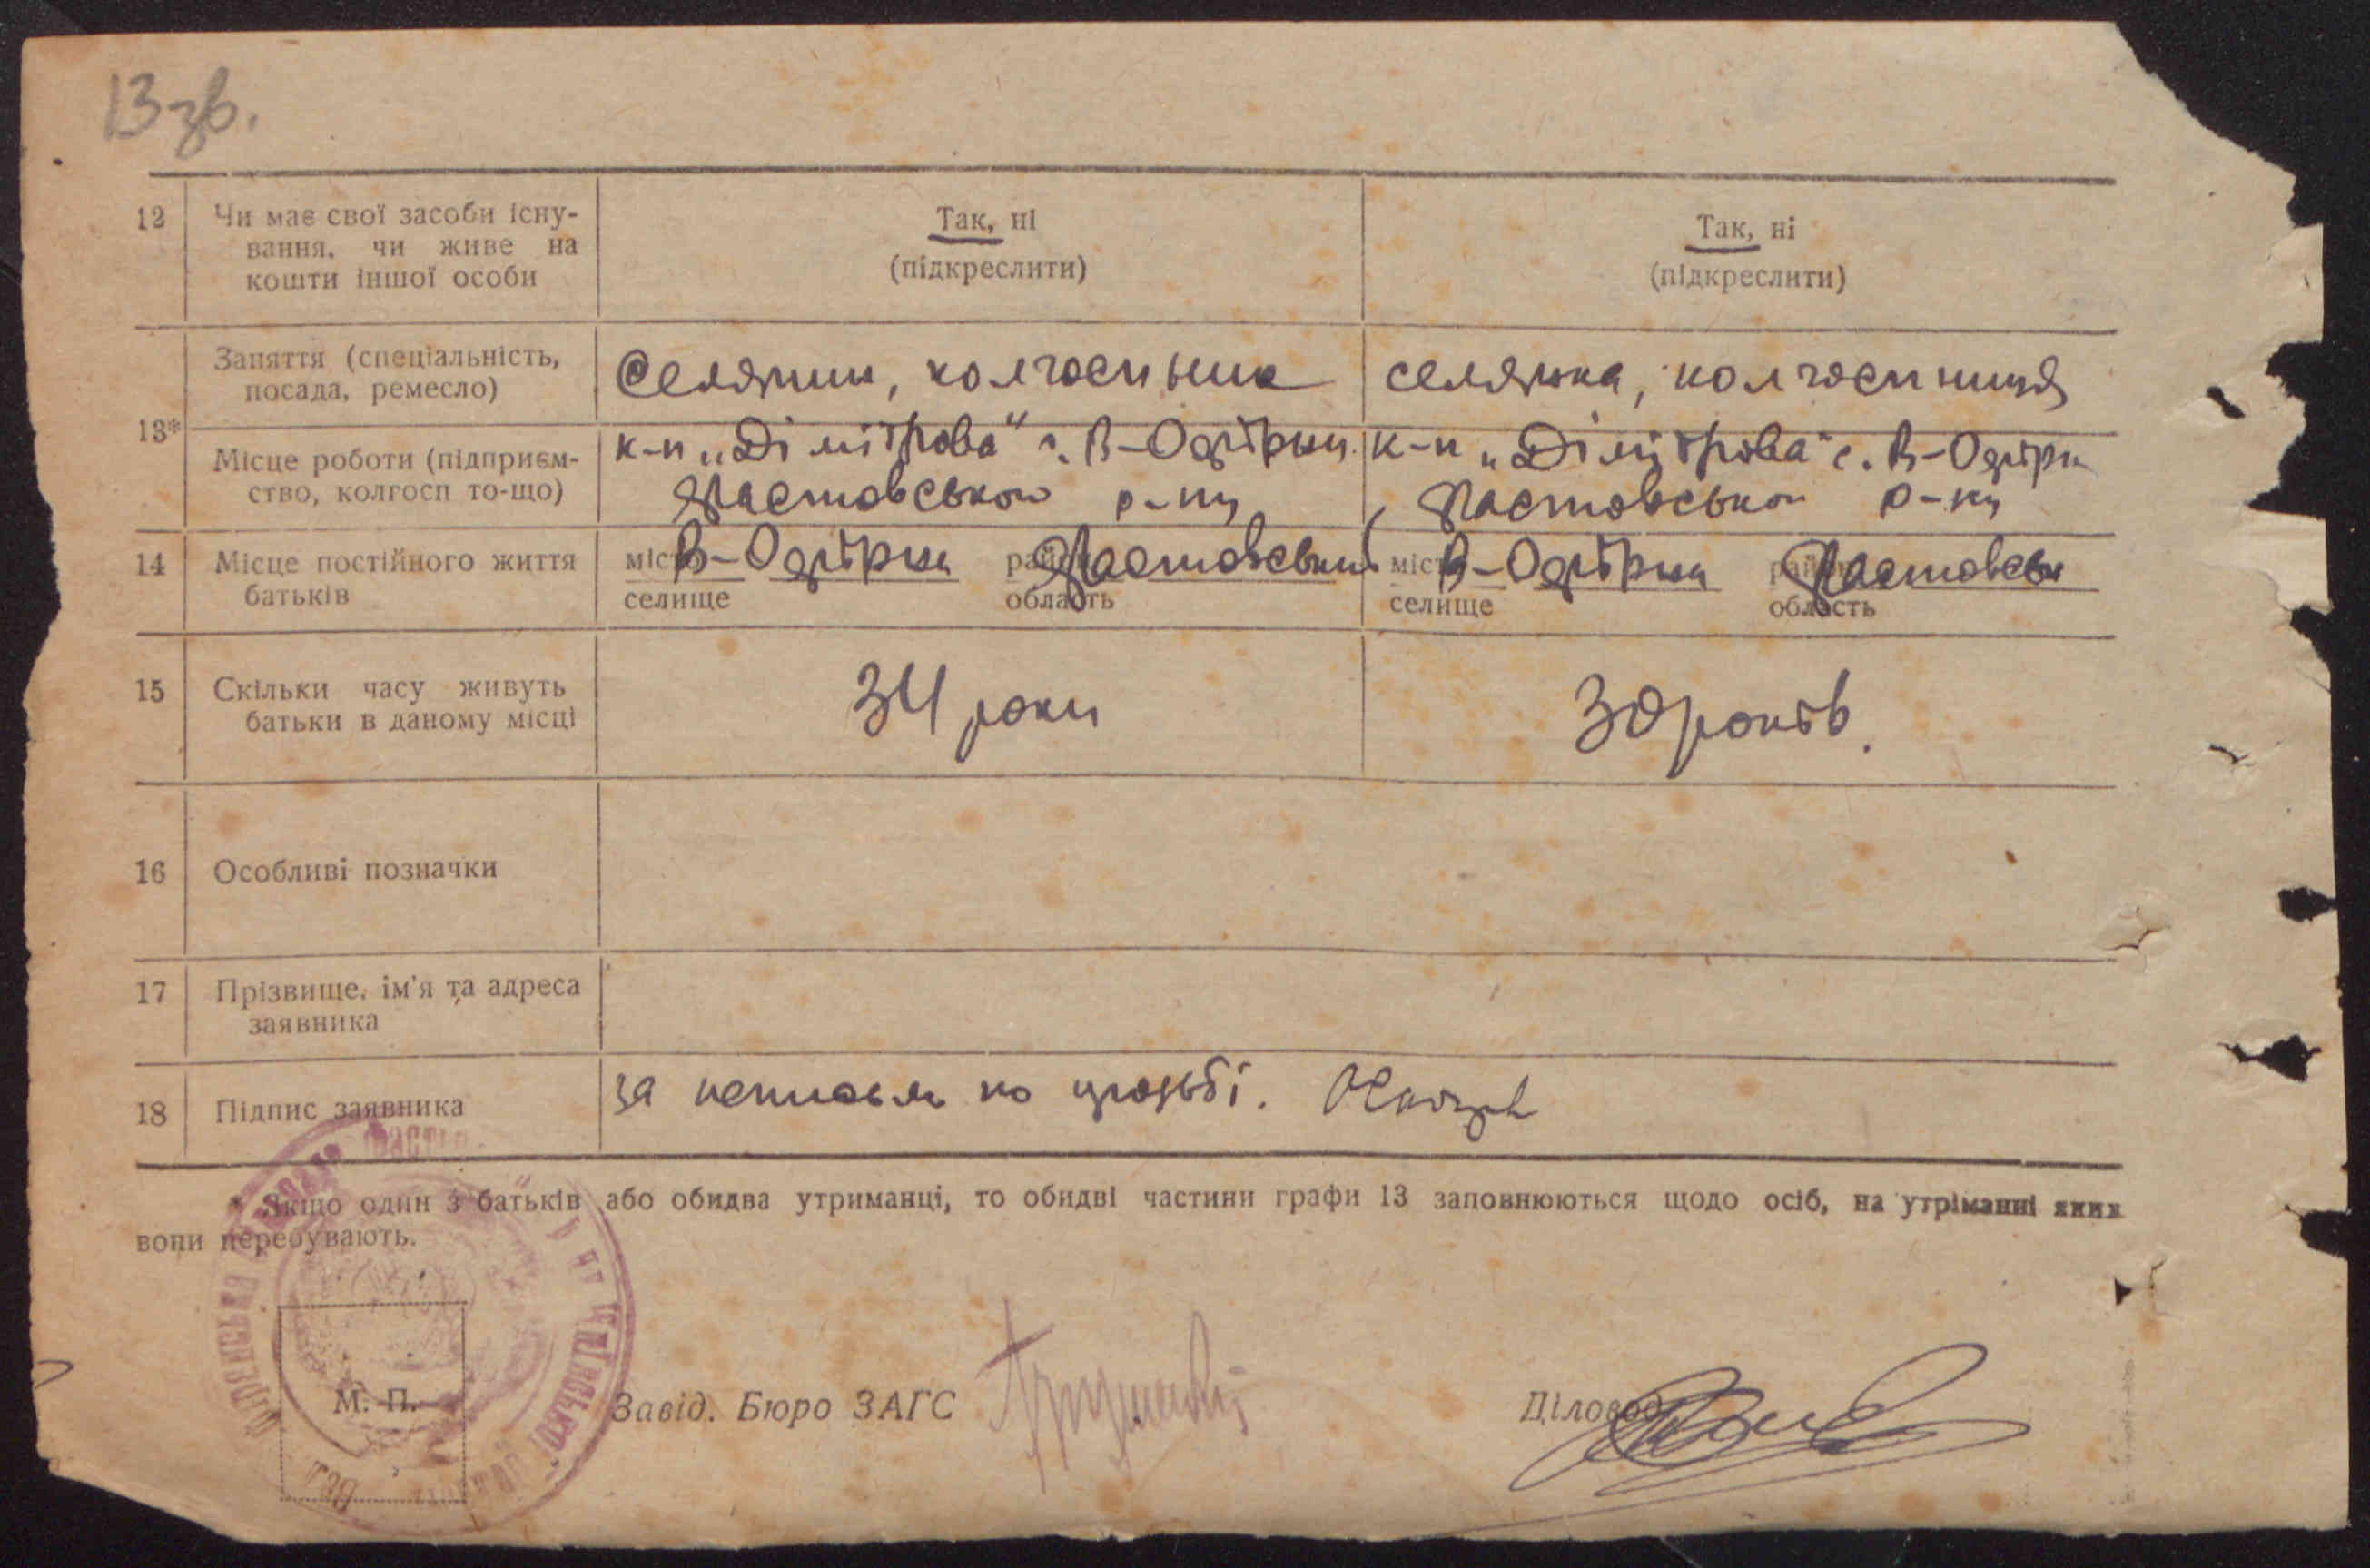 13 зв.
12 Чи має свої засоби існу-
вання, чи живе на
кошти іншої особи
Так, ні
(підкреслити)
Так, ні
(підкреслити)
13*
Заняття (спеціальність,
посада, ремесло)
Селянин, колгоспник
селянка, колгоспниця
Місце роботи (підприєм-
ство, колгосп то-що)
к-п „Дімітрова" с. В-Офірна
Фастовського р-ну
к-п „Дімітрова" с. В-Офірн
Фастовського р-ну
14 Місце постійного життя
батьків
місто В-Офірна район Фастовський
селище область
місто В-Офірна район Фастовськ
селище область
15 Скільки часу живуть
батьки в даному місці
34 роки
30 років.
16 Особливі позначки
17 Прізвище, ім'я та адреса
заявника
18 Підпис заявника
за
* Якщо один з батьків або обидва утриманці, то обидві частини графи 13 заповнюються щодо осіб, на утріманні яких
вони перебувають.
М. П.
Завід. Бюро ЗАГС
Діловод